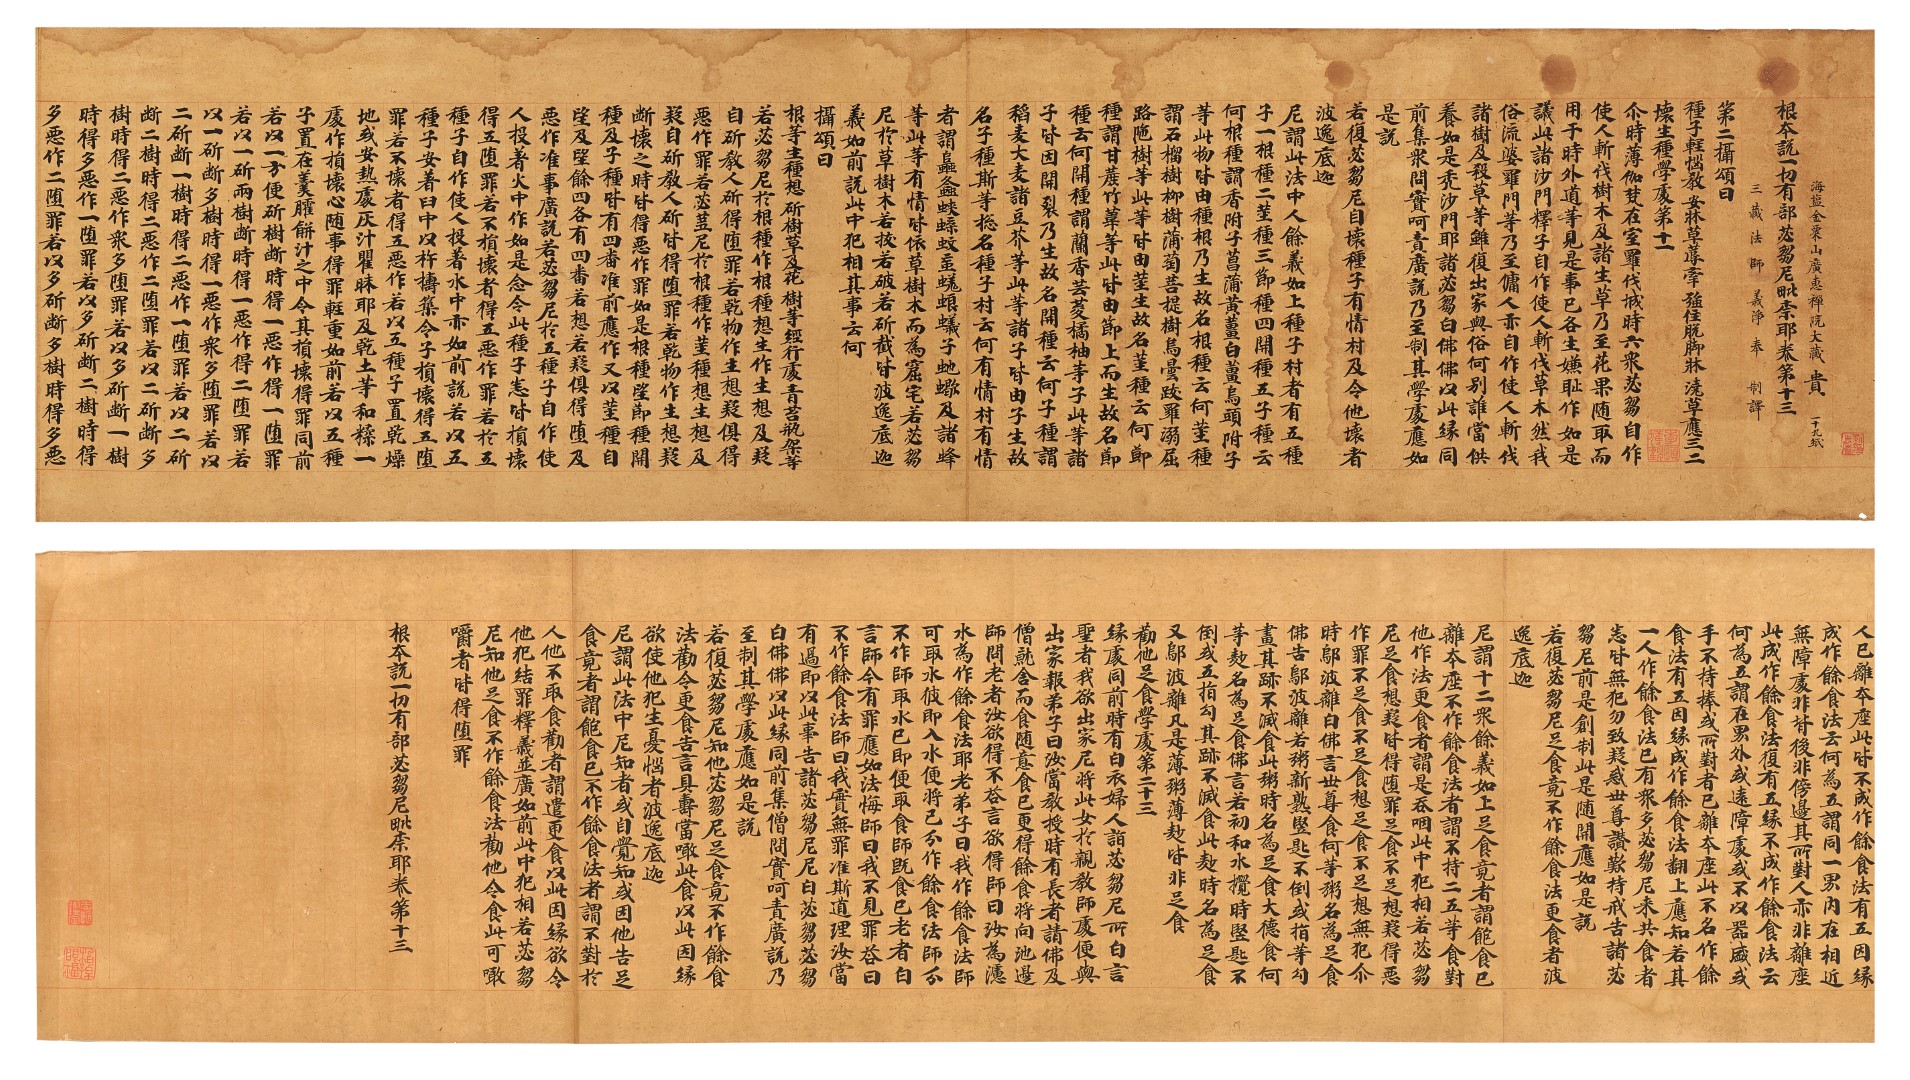 海鹽金粟山廣惠禪院大藏 貴 一十九紙
根本說一切有部苾芻尼毗柰耶卷第十三
三藏法師 義淨奉 制譯
第二攝頌曰
種子輕惱教 安牀草蓐牽 強住脫腳牀 澆草應三二
壞生種學處第十一
尒時薄伽梵在室羅伐城時六衆苾芻自作
使人斬伐樹木及諸生草乃至花果随取而
用于時外道等見是事已各生嫌恥作如是
議此諸沙門釋子自作使人斬伐草木然我
俗流婆羅門等乃至傭人亦自作使人斬伐
諸樹及殺草等雖復出家與俗何別誰當供
養如是禿沙門耶諸苾芻白佛佛以此緣同
前集衆問實呵責廣說乃至制其學處應如
是說
若復苾芻尼自壞種子有情村及令他壞者
波逸底迦
尼謂此法中人餘義如上種子村者有五種
子一根種二莖種三節種四開種五子種云
何根種謂香附子菖蒲黃薑白薑烏頭附子
等此物皆由種根乃生故名根種云何莖種
謂石榴樹柳樹蒲萄菩提樹烏曇跋羅溺屈
路陁樹等此等皆由莖生故名莖種云何節
種謂甘蔗竹葦等此皆由節上而生故名節
種云何開種謂蘭香芸荾橘柚等子此等諸
子皆因開裂乃生故名開種云何子種謂
稻麦大麦諸豆芥等此等諸子皆由子生故
名子種斯等捴名種子村云何有情村有情
者謂䖝螽蛺蝶蚊䖟蜣蜋蟻子虵蝎及諸蜂
等此等有情皆依草樹木而為窟宅若苾芻
尼於草樹木若挍若破若斫截皆波逸底迦
義如前說此中犯相其事云何
攝頌曰
根等生種想 斫樹草及花 樹等經行處 青苔瓶架等
若苾芻尼於根種作根種想生作生想及疑
自斫教人斫得墮罪若乾物作生想疑俱得
惡作罪若苾芻尼於根種作莖種想生想及
疑自斫教人斫皆得墮罪若乾物作生想疑
斷壞之時皆得惡作罪如是根種望節種開
種及子種皆有四番准前應作又以莖種自
望及望餘四各有四番若想若疑俱得墮及
惡作准事廣說若苾芻尼於五種子自作使
人投著火中作如是念令此種子悉皆損壞
得五墮罪若不損壞者得五惡作罪若於五
種子自作使人投著水中亦如前說若以五
種子安著臼中以杵擣築令子損壞得五墮
罪若不壞者得五惡作若以五種子置乾燥
地或安熱處灰汁瞿昧耶及乾土等和糅一
處作損壞心随事得罪輕重如前若以五種
子置在羹臛餅汁之中令其損壞得罪同前
若以一方便斫樹斷時得一惡作得一墮罪
若以一斫兩樹斷時得一惡作得二墮罪若
以一斫斷多樹時得一惡作衆多墮罪若以
二斫斷一樹時得二惡作一墮罪若以二斫
斷二樹時得二惡作二墮罪若以二斫斷多
樹時得二惡作衆多墮罪若以多斫斷一樹
時得多惡作一墮罪若以多斫斷二樹時得
多惡作二墮罪若以多斫斷多樹時得多惡
人已離本座此皆不成作餘食法有五因緣
成作餘食法云何為五謂同一界內在相近
無障處非背後非傍邊其所對人亦非離座
此成作餘食法復有五緣不成作餘食法云
何為五謂在界外或遠障處或不以器盛或
手不持捧或所對者已離本座此不名作餘
食法有五因緣成作餘食法翻上應知若其
一人作餘食法已有衆多苾芻尼来共食者
悉皆無犯勿致疑惑世尊讚歎持戒告諸苾
芻尼前是創制此是随開應如是說
若復苾芻尼足食竟不作餘食法更食者波
逸底迦
尼謂十二衆餘義如上足食竟者謂飽食已
離本座不作餘食法者謂不持二五等食對
他作法更食者謂是吞咽此中犯相若苾芻
尼足食想疑皆得墮罪足食不足想疑得惡
作罪不足食不足食想足食不足想無犯尒
時鄔波離白佛言世尊食何等粥名為足食
佛告鄔波離若粥新熟竪匙不倒或指等勾
畫其跡不滅食此粥時名為足食大德食何
等麨名為足食佛言若初和水攪時竪匙不
倒或五指勾其跡不滅食此麨時名為足食
又鄔波離凡是薄粥薄麨皆非足食
勸他足食學處第二十三
緣處同前時有白衣婦人詣苾芻尼所白言
聖者我欲出家尼將此女於親教師處便與
出家報弟子曰汝當教授時有長者請佛及
僧就舍而食随意食已更得餘食將向池邊
師問老者汝欲得不荅言欲得師曰汝為濾
水為作餘食法耶老弟子曰我作餘食法師
可取水彼即入水便將己分作餘食法師分
不作師取水已即便取食師既食已老者白
言師今有罪應如法悔師曰我不見罪荅曰
不作餘食法師曰我實無罪准斯道理汝當
有過即以此事告諸苾芻尼尼白苾芻苾芻
白佛佛以此緣同前集僧問實呵責廣說乃
至制其學處應如是說
若復苾芻尼知他苾芻尼足食竟不作餘食
法勸令更食告言具壽當噉此食以此因緣
欲使他犯生憂惱者波逸底迦
尼謂此法中尼知者或自覺知或因他告足
食竟者謂飽食已不作餘食法者謂不對於
人他不取食勸者謂遣更食以此因緣欲令
他犯結罪釋義並廣如前此中犯相若苾芻
尼知他足食不作餘食法勸他令食此可噉
嚼者皆得墮罪
根本說一切有部苾芻尼毗柰耶卷第十三